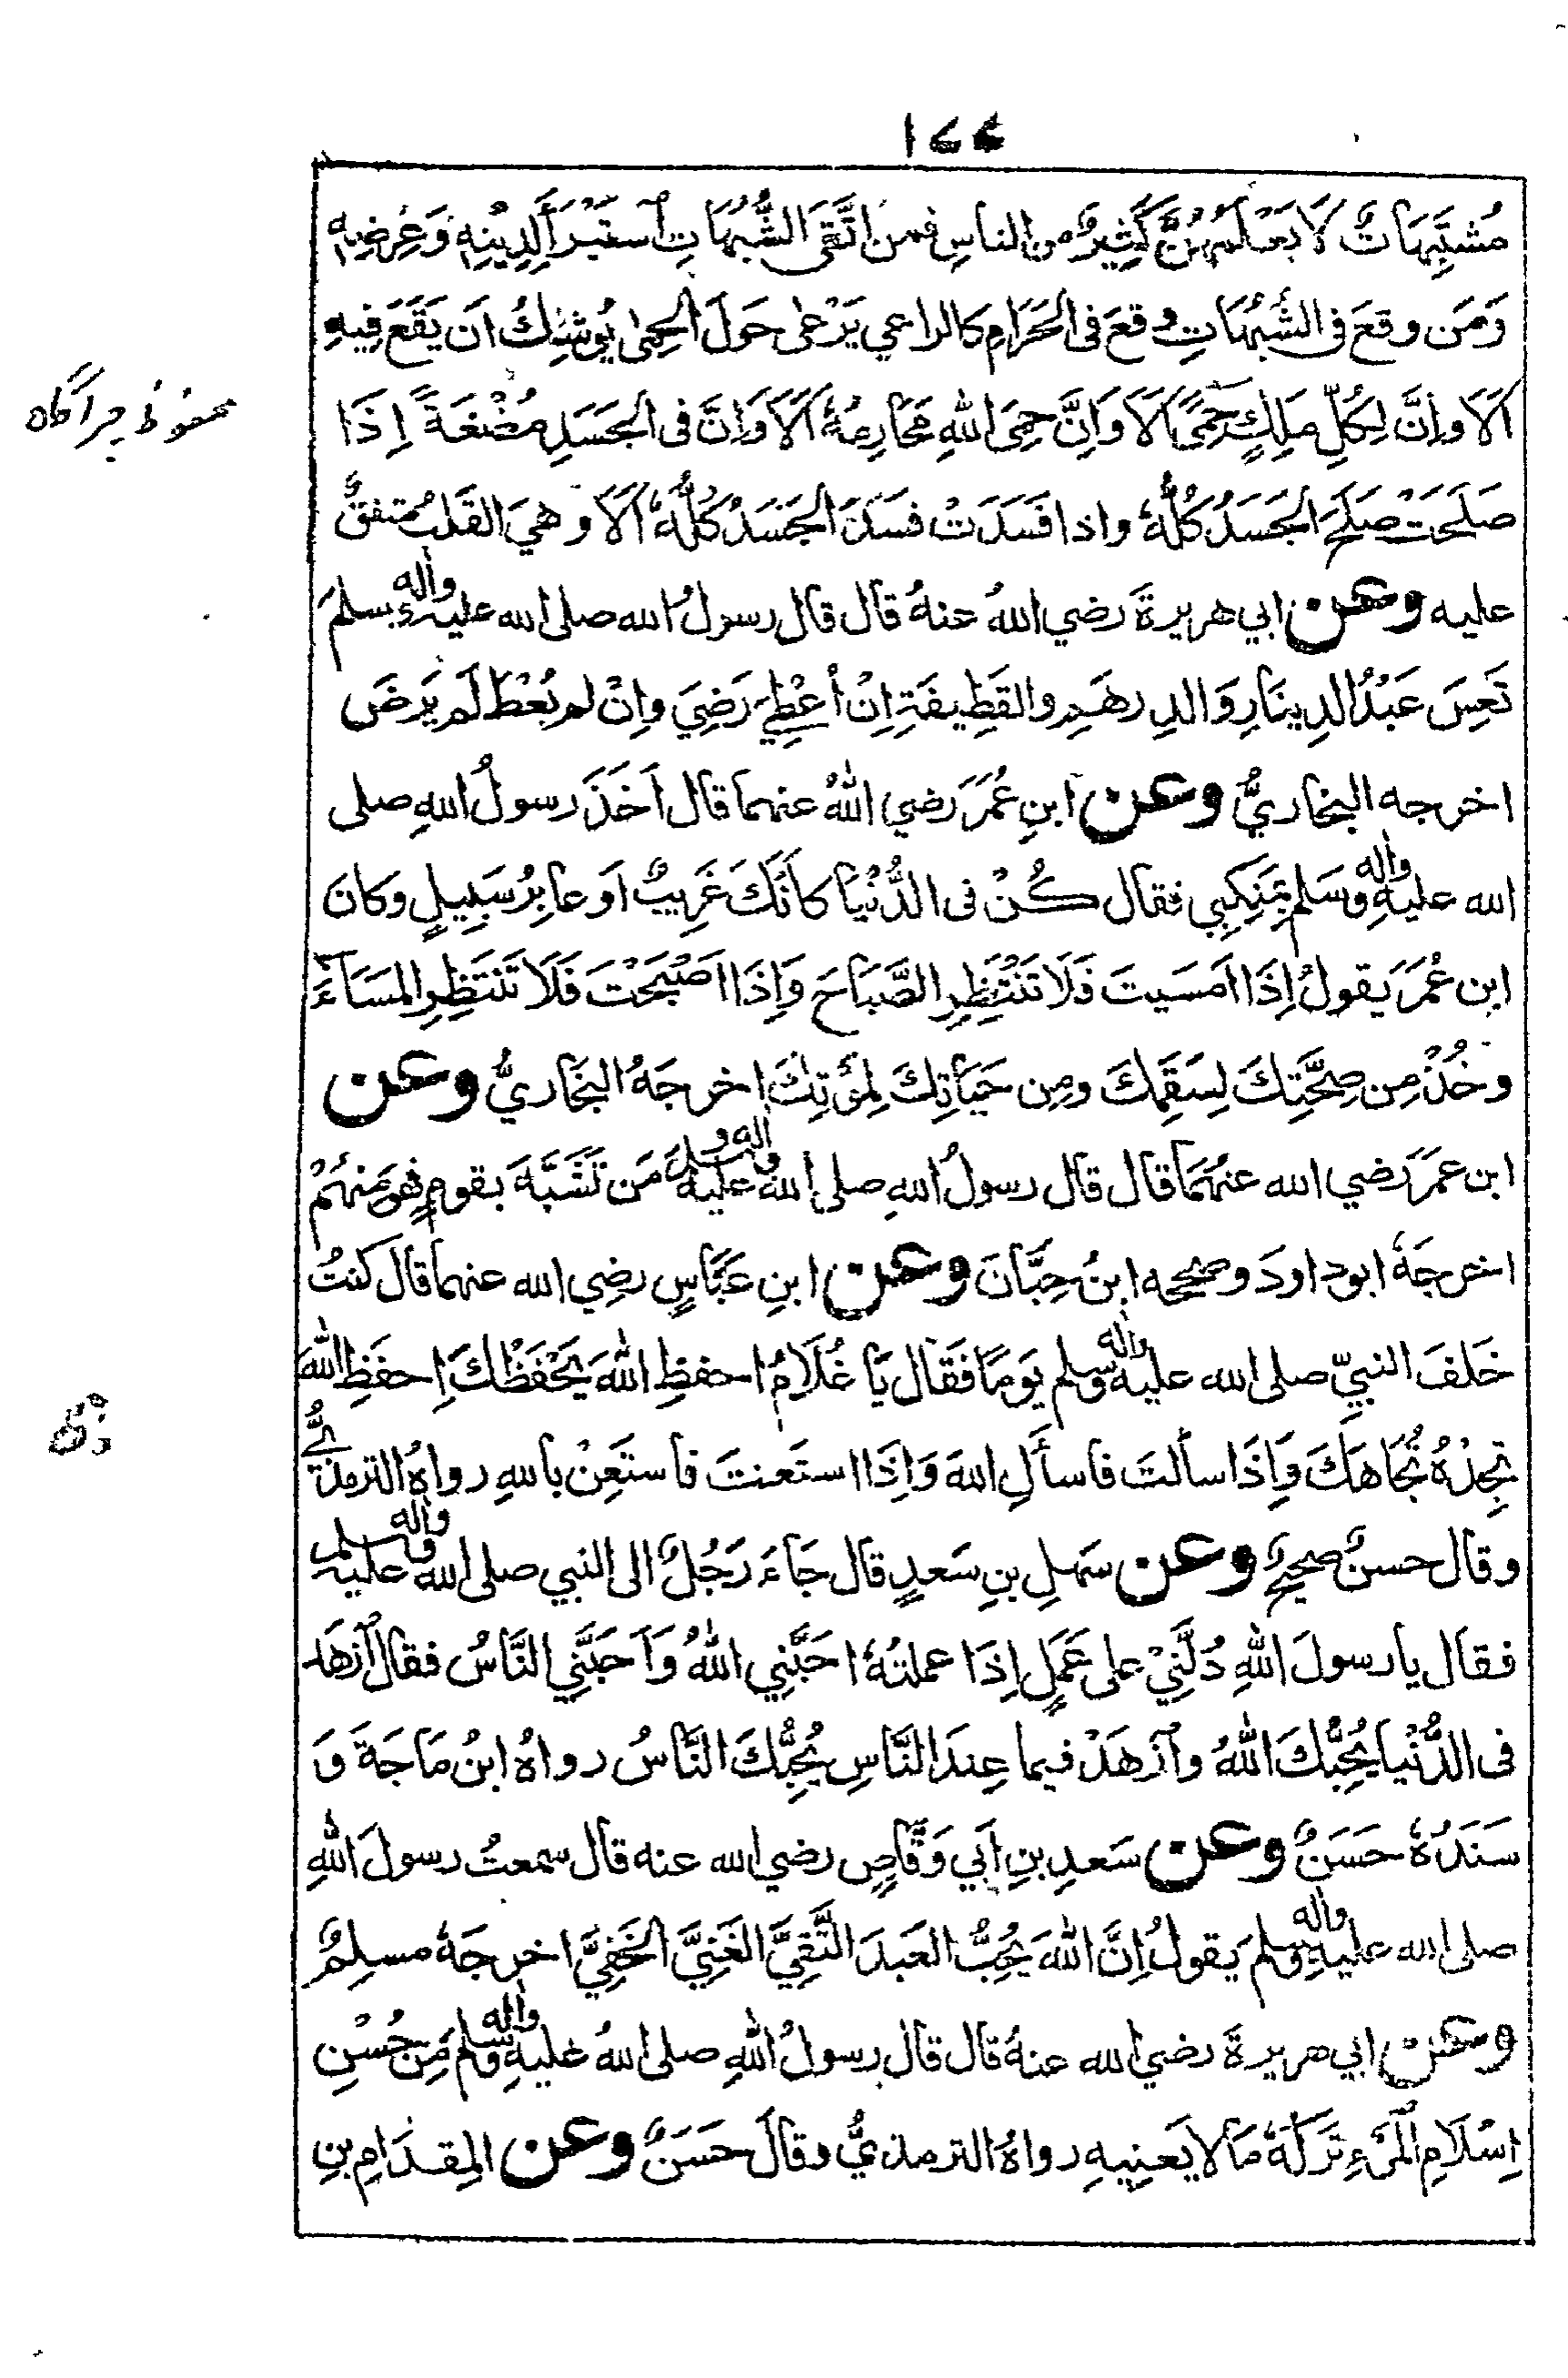 ۱۷۷
مُشَبَّهَاتٌ لَا يَعْلَمُهُنَّ كَثِيرٌ من الناسِ فمن اتَّقَى الشُّبُهَاتِ اَستَبْرَأَ لِدِينِهٖ وَعِرضِهٖ
وَمَن وقعَ فى الشُّبُهَاتِ وقعَ فى الحَرَامِ كالراعي يَرْعى حَولَ الحِمٰى يُوشِكُ اَن يَقَعَ فِيهِ
اَلَا وَاِنَّ لِكُلِّ مَلِكٍ حِمًى اَلَا وَاِنَّ حِمَى اللهِ مَحَارِمُهٗ اَلَا وَاِنَّ فى الجَسَدِ مُضْغَةً اِذَا
محفوظ چراگاه
صَلَحَتْ صَلَحَ الجَسَدُ كُلُّهٗ واذا فَسَدَتْ فسَدَ الجَسَدُ كُلُّهٗ اَلَا وهِيَ القَلبُ متفقٌ
عليه وعن ابي هريرةَ رضي اللهُ عنهُ قال قال رسولُ الله صلى الله عليه واٰله وسلمَ
تَعِسَ عَبْدُ الدِينَارِ وَالدِرهَمِ والقَطِيفَةِ اِنْ اُعْطِيَ رَضِيَ واِنْ لم يُعْطَ لَم يَرضَ
اخرجه البخاريُّ وعن ابنِ عُمَرَ رضي اللهُ عنهما قال اَخَذَ رسولُ اللهِ صلى
الله عليهِ واٰله وسَلم بِمَنكِبِي فقال كُنْ فى الدُّنْيَا كأَنَّكَ غَرِيبٌ اَو عابِرُ سَبِيلٍ وكانَ
ابن عُمَرَ يَقولُ اِذَا اَمسَيتَ فَلَا تَنْتَظِرِ الصَّبَاحَ وَاِذَا اَصْبَحْتَ فَلَا تَنتَظِرِ المَسَآءَ
وخُذْ مِن صِحَّتِكَ لِسَقَمِكَ ومِن حَيَاتِكَ لِمَوتِكَ اخرجَهُ البخَاريُّ وعن
ابن عمَرَ رَضي الله عنهُمَا قال قال رسولُ اللهِ صلى الله عليه واٰله وسلم مَن تَشَبَّهَ بقومٍ فهو مِنهُمْ
اخرجَهٗ ابوداودَ وصححه ابنُ حِبَّانَ وعن ابنِ عَبَّاسٍ رضِي الله عنهما قال كنتُ
خَلفَ النبيِّ صلى الله عليه واٰله وسلم يَومًا فَقَال يَا غُلَامُ احفظِ اللهَ يَحْفَظْكَ اِحفَظِ اللهَ
تَجِدْهُ تُجَاهَكَ وَاِذَا سألتَ فاسأَلِ اللهَ وَاِذَا استَعنتَ فاستَعِنْ باللهِ رواهُ الترمذيُّ
وقال حسنٌ صحيحٌ وعن سَهلِ بنِ سَعدٍ قال جَاءَ رَجُلٌ الى النبي صلى الله عليه واٰله وسلم
فقال يا رسولَ اللهِ دُلَّنِيْ على عَمَلٍ اِذَا عملتُهٗ احَبَّنِي اللهُ وَاَحَبَّنِي النَّاسُ فقال اُزهَد
فى الدُّنْيا يُحِبُّكَ اللهُ واُزهَدْ فيما عِندَ النَّاسِ يُحِبُّكَ النَّاسُ رواهُ ابنُ مَاجَةَ وَ
سَنَدُهٗ حَسَنٌ وعن سَعدِ بنِ اَبي وَقَّاصٍ رضي الله عنه قال سمعتُ رسولَ اللهِ
صلى الله عليهِ واٰله وسلمَ يَقولُ اِنَّ اللهَ يُحِبُّ العَبدَ التَّقِيَّ الغَنِيَّ الخَفِيَّ اخرجَهٗ مسلِمٌ
وعن ابي هريرةَ رضي الله عنهُ قال قال رسولُ اللهِ صلى اللهُ عليهِ واٰله وسلم مِن حُسْنِ
اِسْلَامِ المَرْءِ تَركُهٗ مَا لا يَعنِيهِ رواهُ الترمذيُّ وقال حَسَنٌ وعن المِقدَامِ بنِ